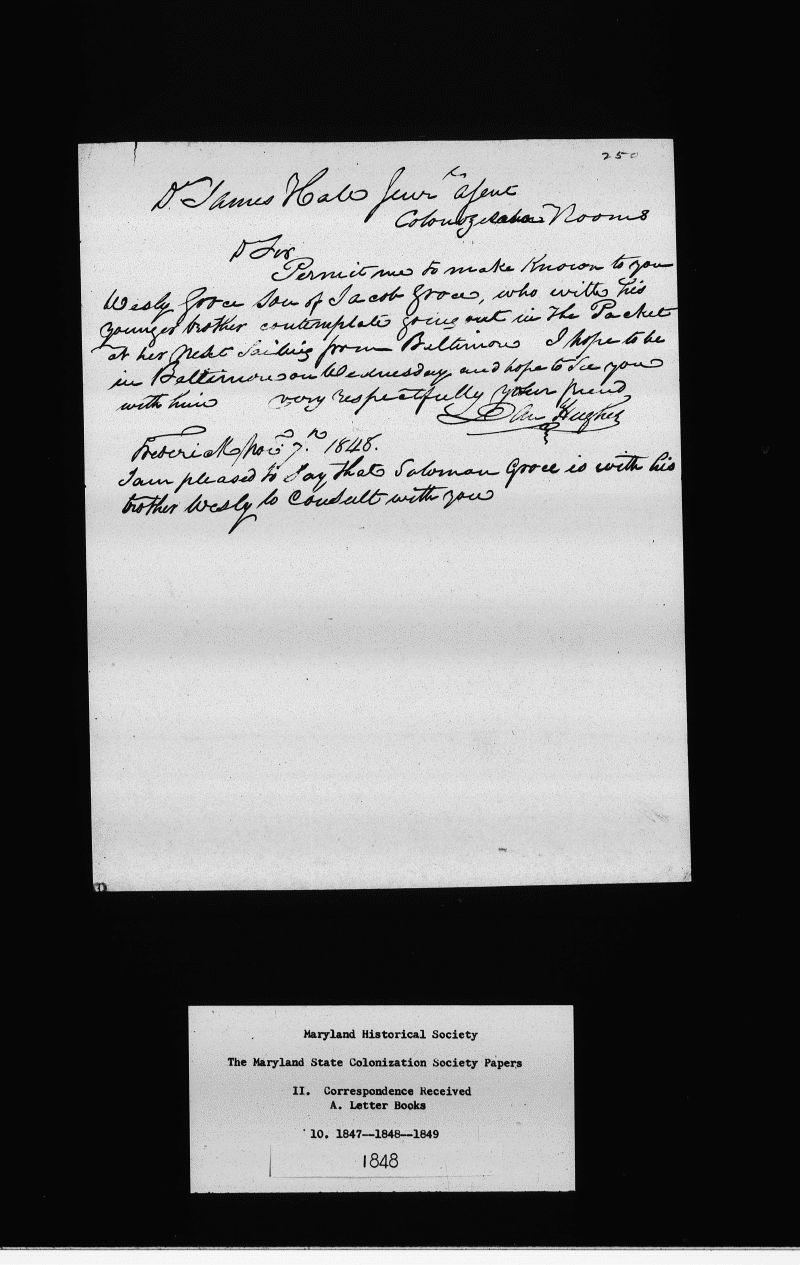 250
Dr James Hale Genr l agent
Colonization Rooms
D Sir
Permit me to make Known to you
Wesly Groce Son of Jacob Groce, who with his
younger brother contemplate going out in the Packet
at her next Sailing from Baltimore I hope to be
in Baltimore on Wednesday and hope to See you
with him very respectfully your friend
Dan Hughes
Frederick Nov 7th 1848.
I am pleased to Say that Soloman Groce is with his
brother Wesly to Consult with you
Maryland Historical Society
The Maryland State Colonization Society Papers
II. Correspondence Received
A. Letter Books
10. 1847--1848--1849
1848